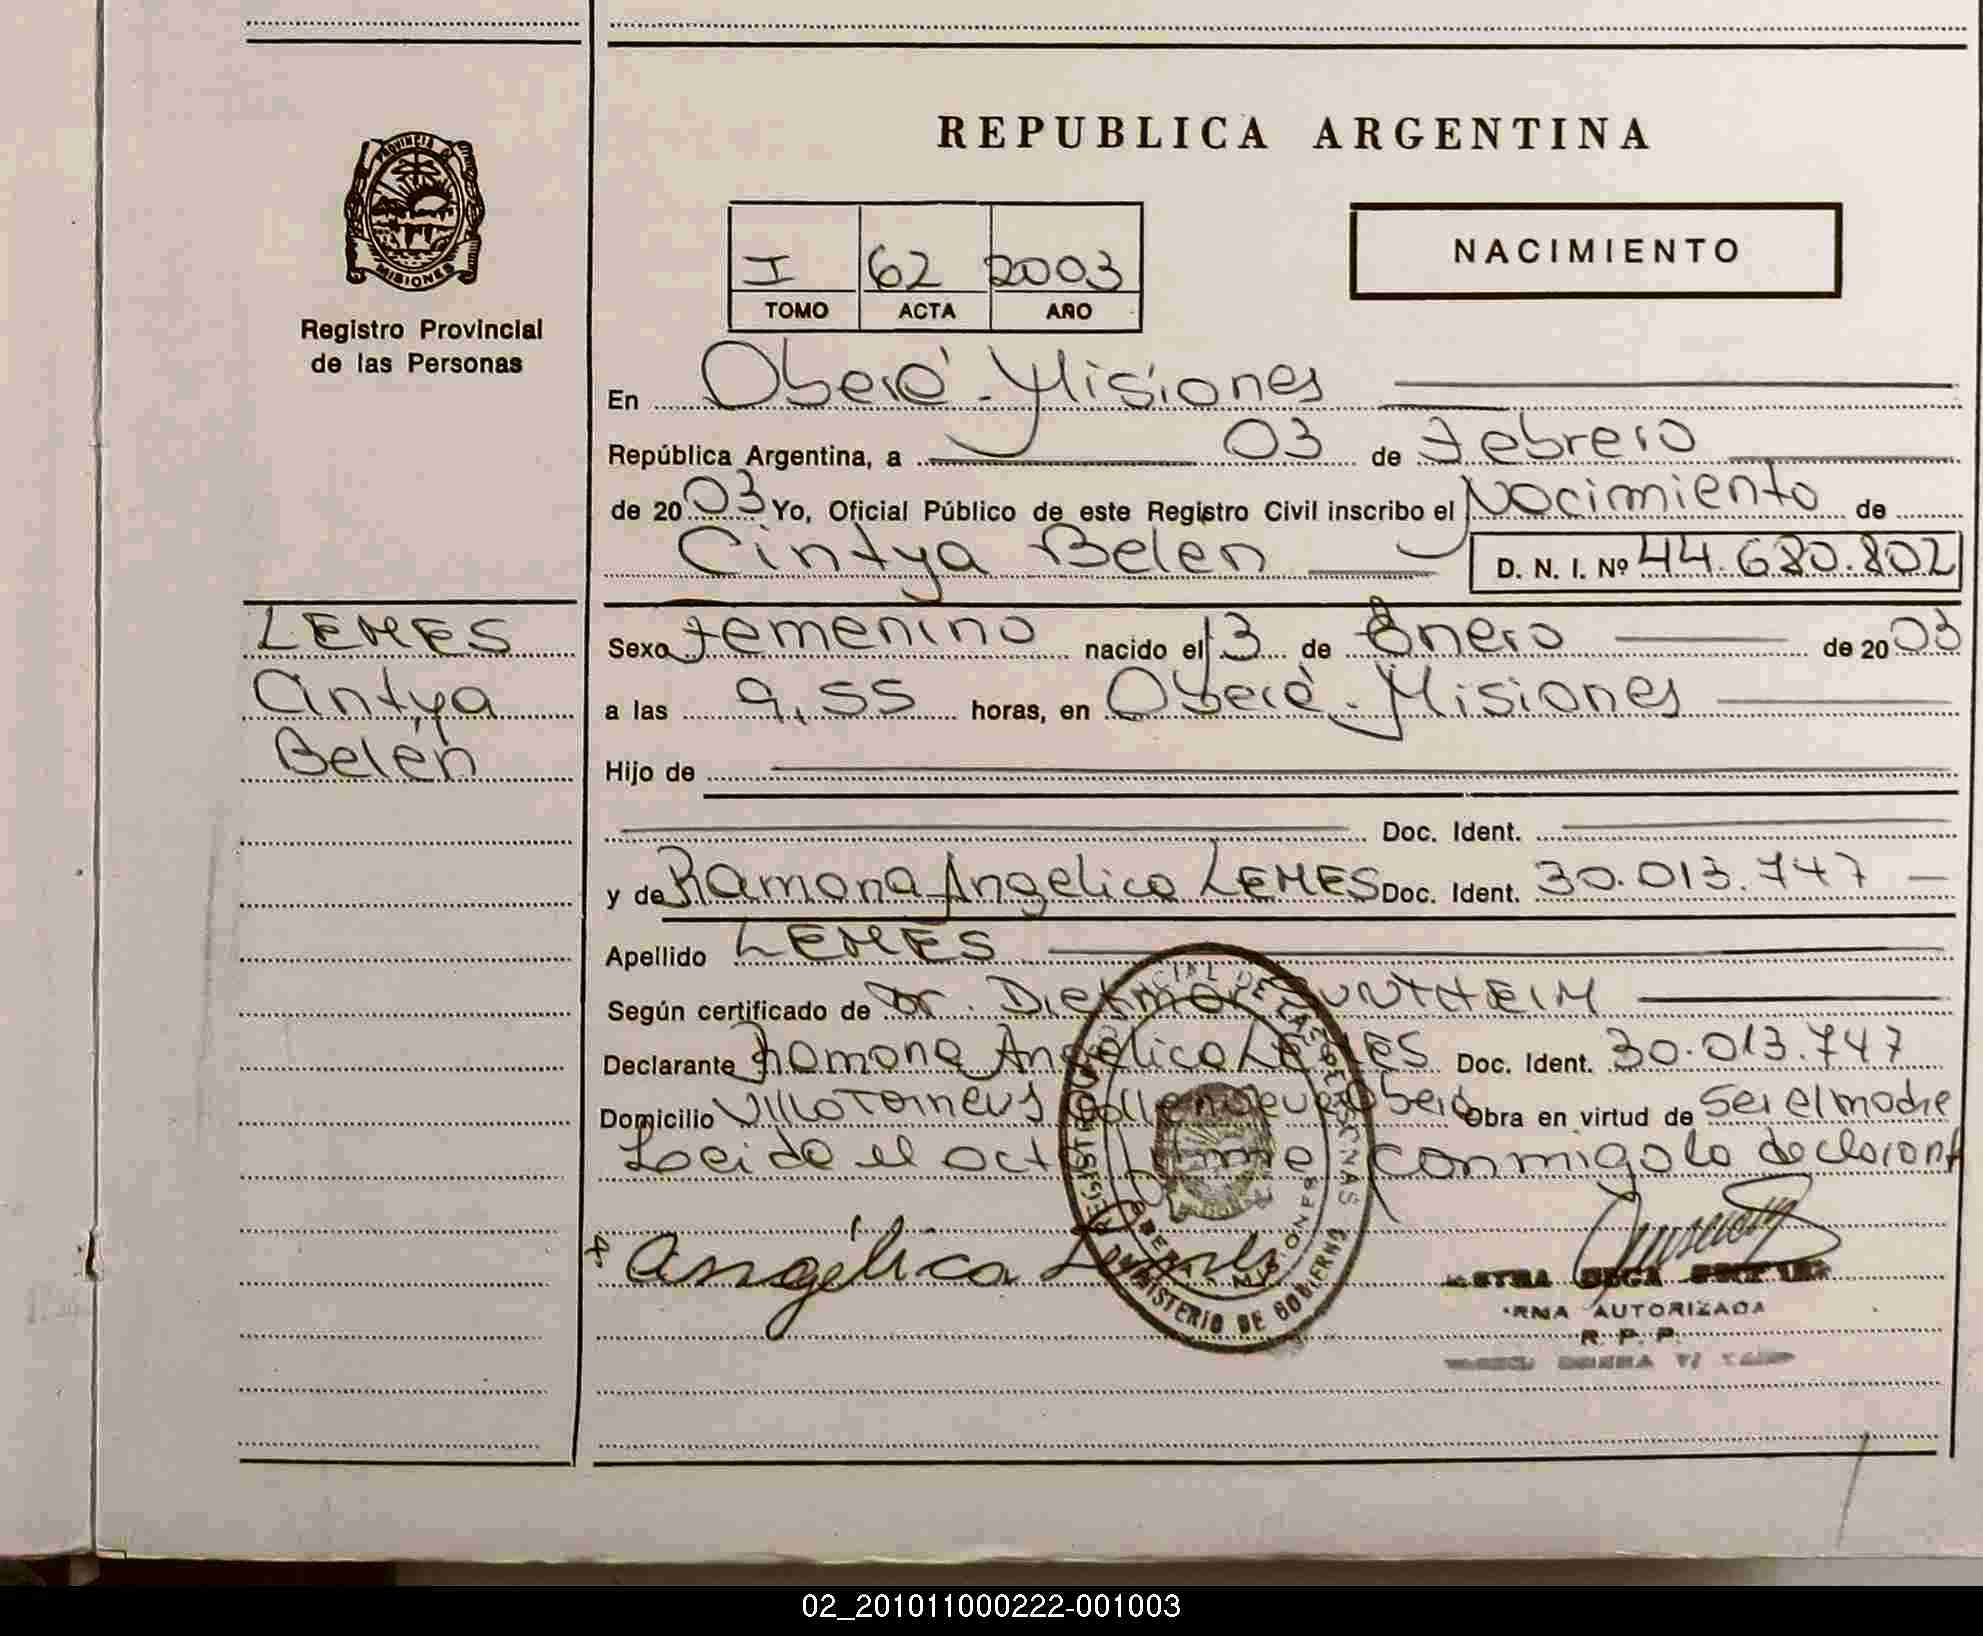 PROVINCIA DE
MISIONES
Registro Provincial
de las Personas
REPUBLICA ARGENTINA
I 62 2003
TOMO ACTA AÑO
NACIMIENTO
En Oberá - Misiones
República Argentina, a 03 de Febrero
de 20 03 Yo, Oficial Público de este Registro Civil inscribo el Nacimiento de
Cintya Belen D. N. I. Nº 44.680.802
LEMES
Cintya
Belén
Sexo femenino nacido el 13 de Enero de 20 03
a las 9,55 horas, en Oberá - Misiones
Hijo de
Doc. Ident.
y de Ramona Angelica LEMES Doc. Ident. 30.013.747
Apellido LEMES
Según certificado de Dr. Dietmar
Declarante Ramona Angelica LEMES Doc. Ident. 30.013.747
Domicilio Villa Oberá Obra en virtud de ser el madre
Leida el acta firma conmigo la declarant
Angélica Lemes
REGISTRO PROVINCIAL DE LAS PERSONAS
MINISTERIO DE GOBIERNO
MISIONES
AUTORIZADA
R. P. P.
02_201011000222-001003